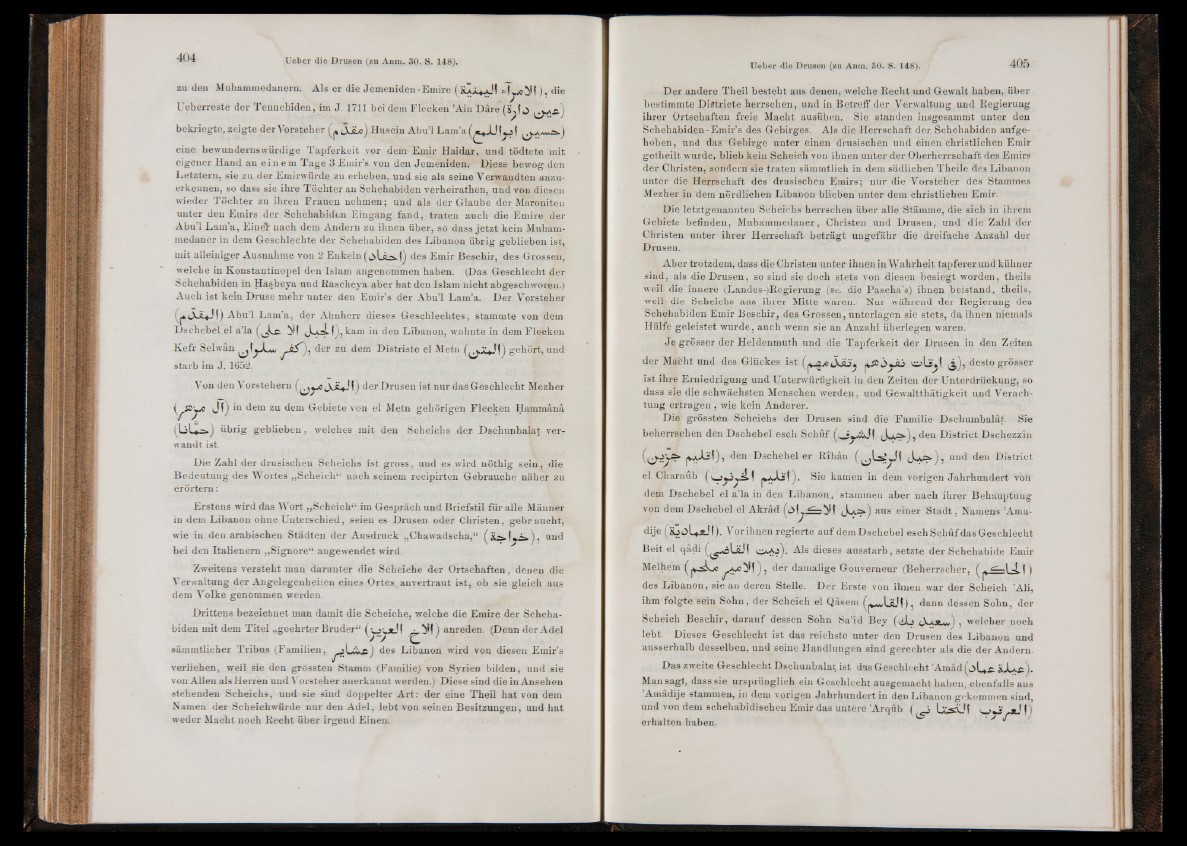 404
Ueber die Drusen (zu Anm. 30. S. 148).
zu den Muhammedanern. Als er die Jemeniden-Emire (الامرآء اليمنية), die
Ueberreste der Tenuchiden, im J. 1711 bei dem Flecken 'Ain Dâre (عين دارة)
bekriegte, zeigte der Vorsteher (مقدم) Husein Abu'l Lam'a (حسين ابو اللمع)
eine bewundernswürdige Tapferkeit vor dem Emir Haidar, und tödtete mit
eigener Hand an einem Tage 3 Emir's von den Jemeniden. Diess bewog den
Letztern, sie zu der Emirwürde zu erheben, und sie als seine Verwandten anzu-
erkennen, so dass sie ihre Töchter an Schehabiden verheirathen, und von diesen
wieder Töchter zu ihren Frauen nehmen; und als der Glaube der Maroniten
unter den Emirs der Schehabiden Eingang fand, traten auch die Emire der
Abu'l Lam'a, Einer nach dem Andern zu ihnen über, so dass jetzt kein Muham-
medaner in dem Geschlechte der Schehabiden des Libanon übrig geblieben ist,
mit alleiniger Ausnahme von 2 Enkeln (احفاد) des Emir Beschir, des Grossen,
welche in Konstantinopel den Islam angenommen haben. (Das Geschlecht der
Schehabiden in Ḥaṣbeya und Rascheya aber hat den Islam nicht abgeschworen.)
Auch ist kein Druse mehr unter den Emir's der Abu'l Lam'a. Der Vorsteher
(المقدم) Abu'l Lam'a, der Ahnherr dieses Geschlechtes, stammte von dem
Dschebel el a'la (الجبل الاعلى), kam in den Libanon, wohnte in dem Flecken
Kefr Selwân (كفر سلوان), der zu dem Distriste el Metn (المتن) gehört, und
starb im J. 1652.
Von den Vorstehern (المقدمون) der Drusen ist nur das Geschlecht Mezher
(آل مزهر) in dem zu dem Gebiete von el Metn gehörigen Flecken Ḥammânâ
(حمانا) übrig geblieben, welches mit den Scheichs der Dschunbalaṭ ver-
wandt ist.
Die Zahl der drusischen Scheichs ist gross, und es wird nöthig sein, die
Bedeutung des Wortes „Scheich“ nach seinem recipirten Gebrauche näher zu
erörtern:
Erstens wird das Wort „Scheich“ im Gespräch und Briefstil für alle Männer
in dem Libanon ohne Unterschied, seien es Drusen oder Christen, gebraucht,
wie in den arabischen Städten der Ausdruck „Chawadscha,“ (خواجة), und
bei den Italienern „Signore“ angewendet wird.
Zweitens versteht man darunter die Scheiche der Ortschaften, denen die
Verwaltung der Angelegenheiten eines Ortes anvertraut ist, ob sie gleich aus
dem Volke genommen werden.
Drittens bezeichnet man damit die Scheiche, welche die Emire der Scheha-
biden mit dem Titel „geehrter Bruder“ (الاخ العزيز) anreden. (Denn der Adel
sämmtlicher Tribus (Familien, عشاير) des Libanon wird von diesen Emir's
verliehen, weil sie den grössten Stamm (Familie) von Syrien bilden, und sie
von Allen als Herren und Vorsteher anerkannt werden.) Diese sind die in Ansehen
stehenden Scheichs, und sie sind doppelter Art: der eine Theil hat von dem
Namen der Scheichwürde nur den Adel, lebt von seinen Besitzungen, und hat
weder Macht noch Recht über irgend Einen.
Ueber die Drusen (zu Anm. 30. S. 148).
405
Der andere Theil besteht aus denen, welche Recht und Gewalt haben, über
bestimmte Districte herrschen, und in Betreff der Verwaltung und Regierung
ihrer Ortschaften freie Macht ausüben. Sie standen insgesammt unter den
Schehabiden-Emir's des Gebirges. Als die Herrschaft der Schehabiden aufge-
hoben, und das Gebirge unter einen drusischen und einen christlichen Emir
getheilt wurde, blieb kein Scheich von ihnen unter der Oberherrschaft des Emirs
der Christen, sondern sie traten sämmtlich in dem südlichen Theile des Libanon
unter die Herrschaft des drusischen Emirs; nur die Vorsteher des Stammes
Mezher in dem nördlichen Libanon blieben unter dem christlichen Emir.
Die letztgenannten Scheichs herrschen über alle Stämme, die sich in ihrem
Gebiete befinden, Muhammedaner, Christen und Drusen, und die Zahl der
Christen unter ihrer Herrschaft beträgt ungefähr die dreifache Anzahl der
Drusen.
Aber trotzdem, dass die Christen unter ihnen in Wahrheit tapferer und kühner
sind, als die Drusen, so sind sie doch stets von diesen besiegt worden, theils
weil die innere (Landes-)Regierung (sc. die Pascha's) ihnen beistand, theils,
weil die Scheichs aus ihrer Mitte waren. Nur während der Regierung des
Schehabiden Emir Beschir, des Grossen, unterlagen sie stets, da ihnen niemals
Hülfe geleistet wurde, auch wenn sie an Anzahl überlegen waren.
Je grösser der Heldenmuth und die Tapferkeit der Drusen in den Zeiten
der Macht und des Glückes ist (في اوقات نفوذهم وتقدمهم), desto grösser
ist ihre Erniedrigung und Unterwürfigkeit in den Zeiten der Unterdrückung, so
dass sie die schwächsten Menschen werden, und Gewaltthätigkeit und Verach-
tung ertragen, wie kein Anderer.
Die grössten Scheichs der Drusen sind die Familie Dschumbalâṭ. Sie
beherrschen den Dschebel esch Schûf (جبل الشوف), den District Dschezzîn
(اقليم جزين), den Dschebel er Rîhân (جبل الريحان), und den District
el Charnûb (اقليم الخرنوب). Sie kamen in dem vorigen Jahrhundert von
dem Dschebel el a'la in den Libanon, stammen aber nach ihrer Behauptung
von dem Dschebel el Akrâd (جبل الاكراد) aus einer Stadt, Namens 'Ama-
dije (العمادية). Vor ihnen regierte auf dem Dschebel esch Schûf das Geschlecht
Beit el qâḍi (بيت القاضي). Als dieses ausstarb, setzte der Schehabide Emir
Melhem (الامير ملحم), der damalige Gouverneur (Beherrscher, الحاكم)
des Libanon, sie an deren Stelle. Der Erste von ihnen war der Scheich 'Ali,
ihm folgte sein Sohn, der Scheich el Qâsem (القاسم), dann dessen Sohn, der
Scheich Beschir, darauf dessen Sohn Sa'îd Bey (سعيد بك), welcher noch
lebt. Dieses Geschlecht ist das reichste unter den Drusen des Libanon und
ausserhalb desselben, und seine Handlungen sind gerechter als die der Andern.
Das zweite Geschlecht Dschunbalaṭ ist das Geschlecht 'Amâd (عيلة عماد).
Man sagt, dass sie ursprünglich ein Geschlecht ausgemacht haben, ebenfalls aus
'Amâdije stammen, in dem vorigen Jahrhundert in den Libanon gekommen sind,
und von dem schehabidischen Emir das untere 'Arqûb
erhalten haben.